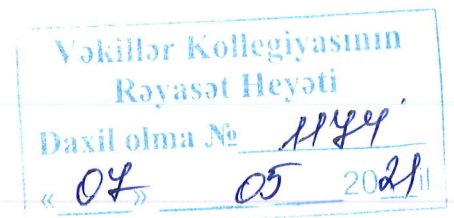 Vəkillər Kollegiyasının
Rəyasət Heyəti
Daxil olma № 1174
« 07 » 05 2021 il